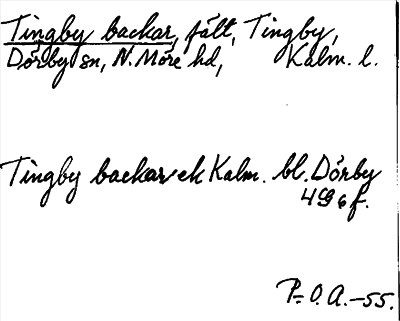 Tingby backar, fält, Tingby,
Dörby sn, N. Möre hd, Kalm. l.
Tingby backar ek Kalm. bl. Dörby
4G6f.
P.O.A.-55.